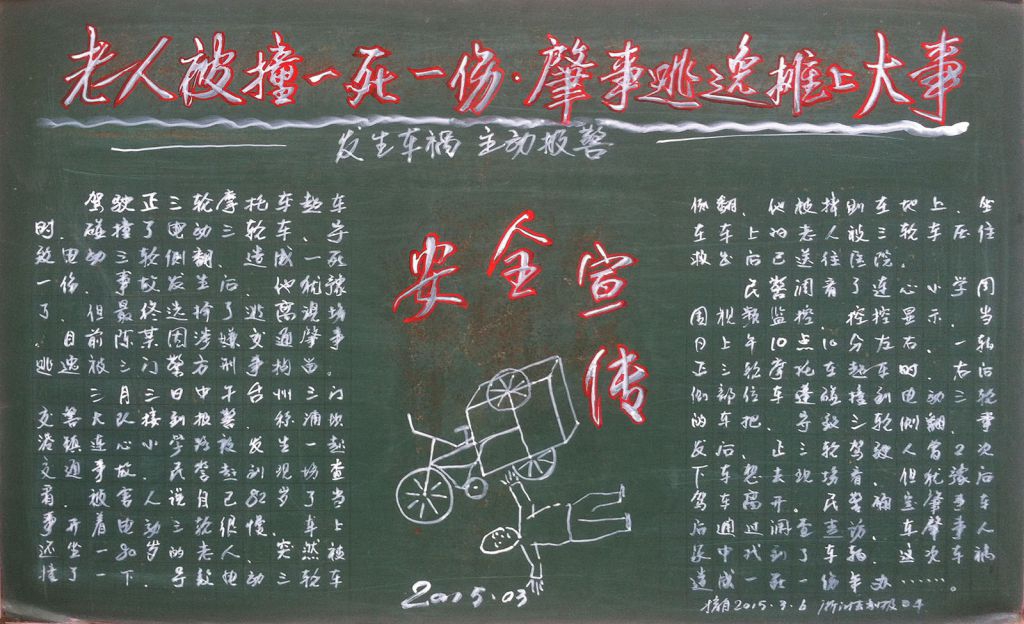 老人被撞一死一伤·肇事逃逸摊上大事
发生车祸 主动报警
驾驶正三轮摩托车超车
时、碰撞了电动三轮车、导
致电动三轮侧翻、造成一死
一伤、事故发生后、他犹豫
了、但最终选择了逃离现场
、目前陈某因涉嫌交通肇事
逃逸被三门警方刑事拘留。
三月三日中午台州三门
交警大队接到报警、称浦坝
港镇连心小学路段发生一起
交通事故、民警赶到现场查
看、被害人说自己82岁了当
事开着电动三轮很慢、车上
还坐一80岁的老人、突然被
撞了一下、导致电动三轮车
安全宣传
2015.03
侧翻、他被摔倒在地上、坐
在车上的老人被三轮车压住
救出后已送往医院。
民警调看了连心小学周
围视频监控、控控显示、当
日上午10点10分左右、一辆
正三轮摩托车超车时、右后
侧部位车蓬碰撞到电动三轮
的车把、导致三轮侧翻、事
发后、正三轮驾驶人曾2次
下车想去现场看、但犹豫后
驾车离开、民警确定肇事车
后通过调查走访、车肇事人
家中找到了车辆、这次车祸
造成一死一伤 办……。
摘自2015.3.6 浙江法制报04